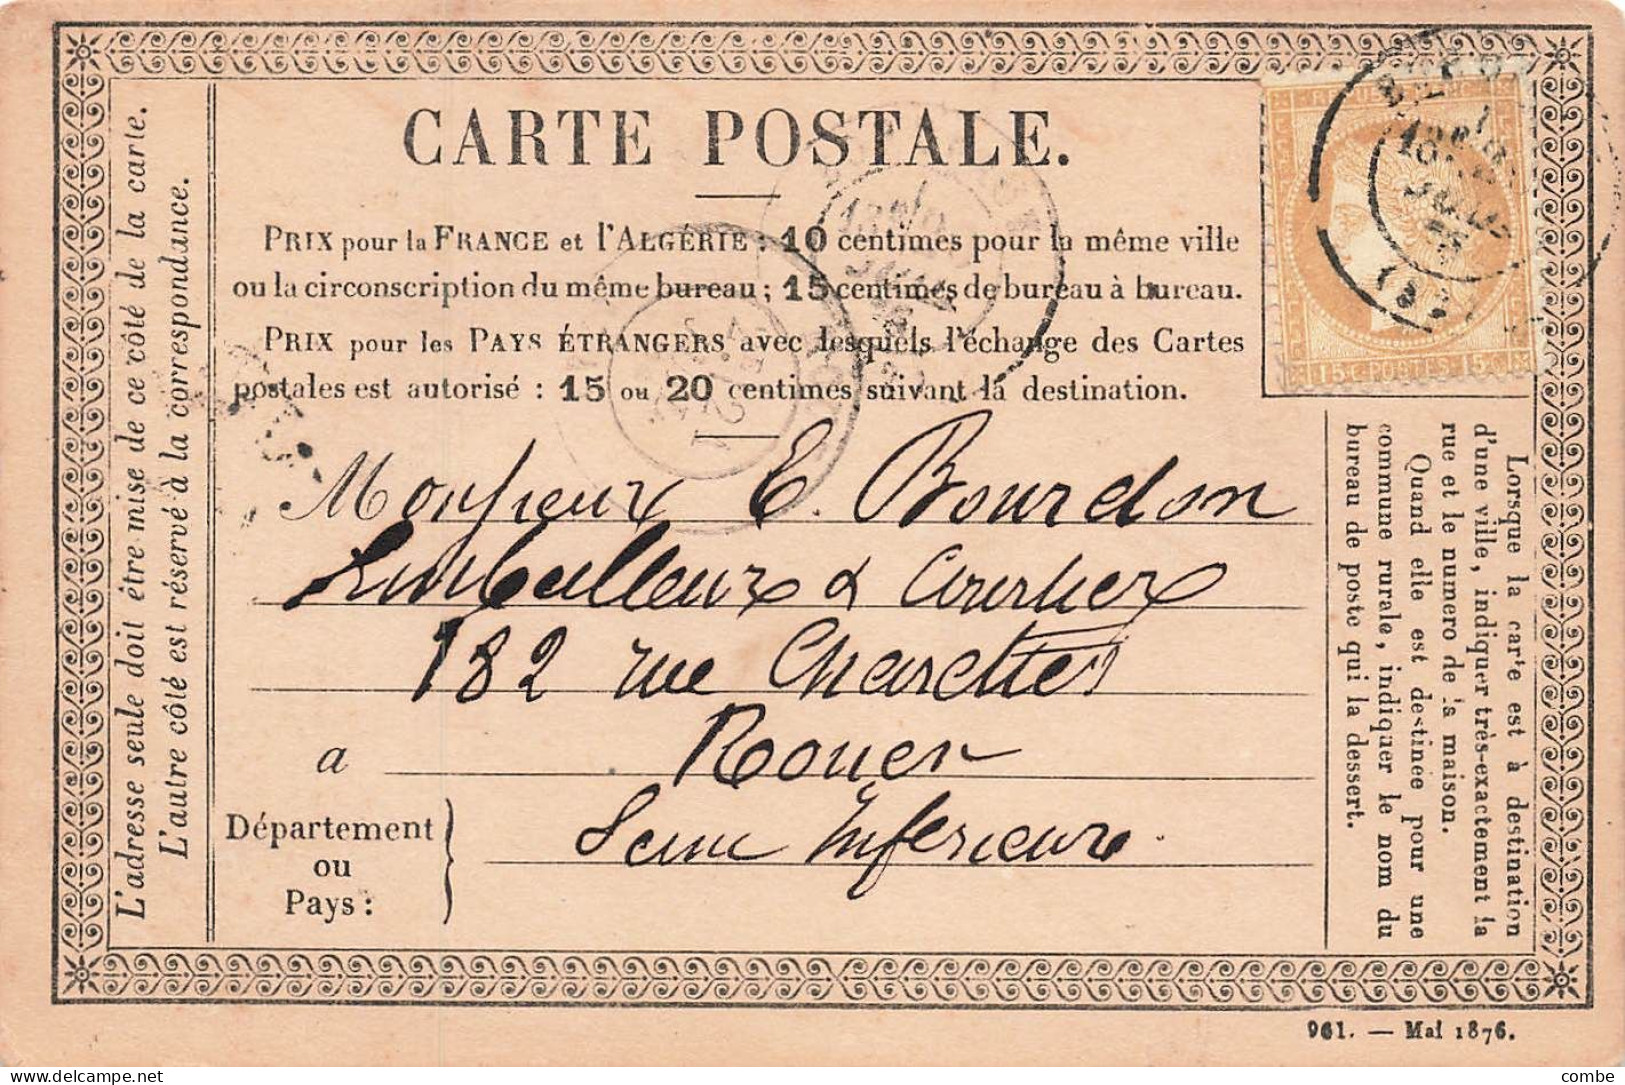 CARTE POSTALE.
PRIX pour la FRANCE et l'ALGÉRIE : 10 centimes pour la même ville
ou la circonscription du même bureau ; 15 centimes de bureau à bureau.
PRIX pour les PAYS ÉTRANGERS avec lesquels l'échange des Cartes
postales est autorisé : 15 ou 20 centimes suivant la destination.
L'adresse seule doit être mise de ce côté de la carte.
L'autre côté est réservé à la correspondance.
15 C POSTES 15 C
Monsieur E. Bourdon
Emballeur & Courtier
182 rue Charettes
a Rouen
Département
ou
Pays :
Seine Inférieure.
Lorsque la carte est à destination
d'une ville, indiquer très-exactement la
rue et le numero de la maison.
Quand elle est destinée pour une
commune rurale, indiquer le nom du
bureau de poste qui la dessert.
961. — Mai 1876.
delcampe.net
combe